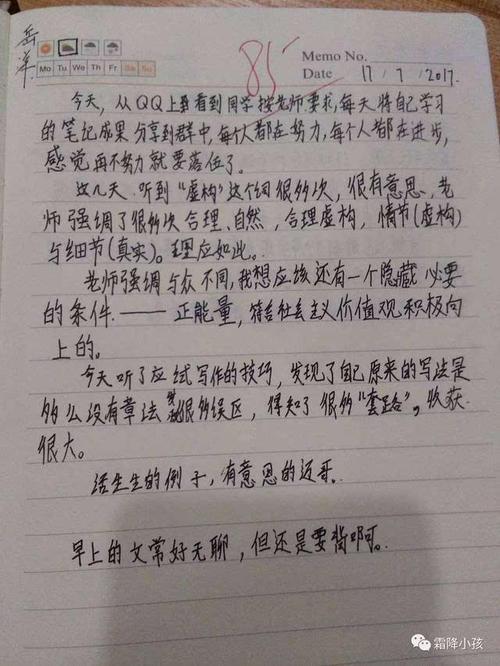 岳洋
85
Memo No.
Mo Tu We Th Fr Sa Su
Date 17 / 7 / 2017.
今天，从QQ上看到同学按老师要求每天将自己学习
的笔记成果分享到群中，每个人都在努力，每个人都在进步，
感觉再不努力就要落伍了。
这几天听到“虚构”这个词很多次，很有意思，老
师强调了很多次合理、自然，合理虚构，情节（虚构）
与细节（真实）。理应如此。
老师强调与众不同，我想应该还有一个隐藏必要
的条件——正能量，符合社会主义价值观积极向
上的。
今天听了应试写作的技巧，发现了自己原来的写法是
多么没有章法 很多误区，得知了很多“套路”，收获
很大。
活生生的例子，有意思的远哥。
早上的文常好无聊，但还是要背啊。
霜降小孩